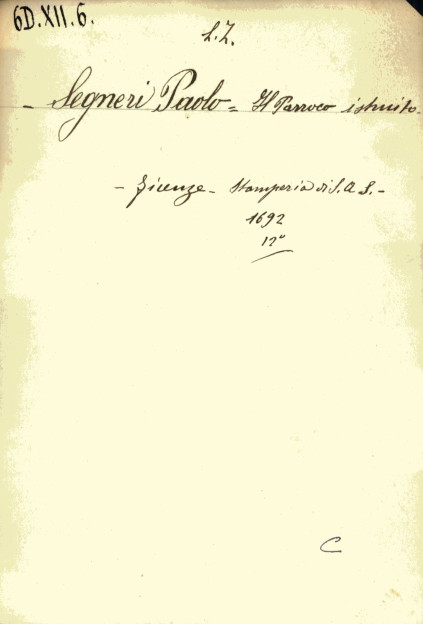 6D.XII.6.
L.Z.
- Segneri Paolo = Il Parroco istruito.
- Firenze - Stamperia di S. A. S. -
1692
12°
C